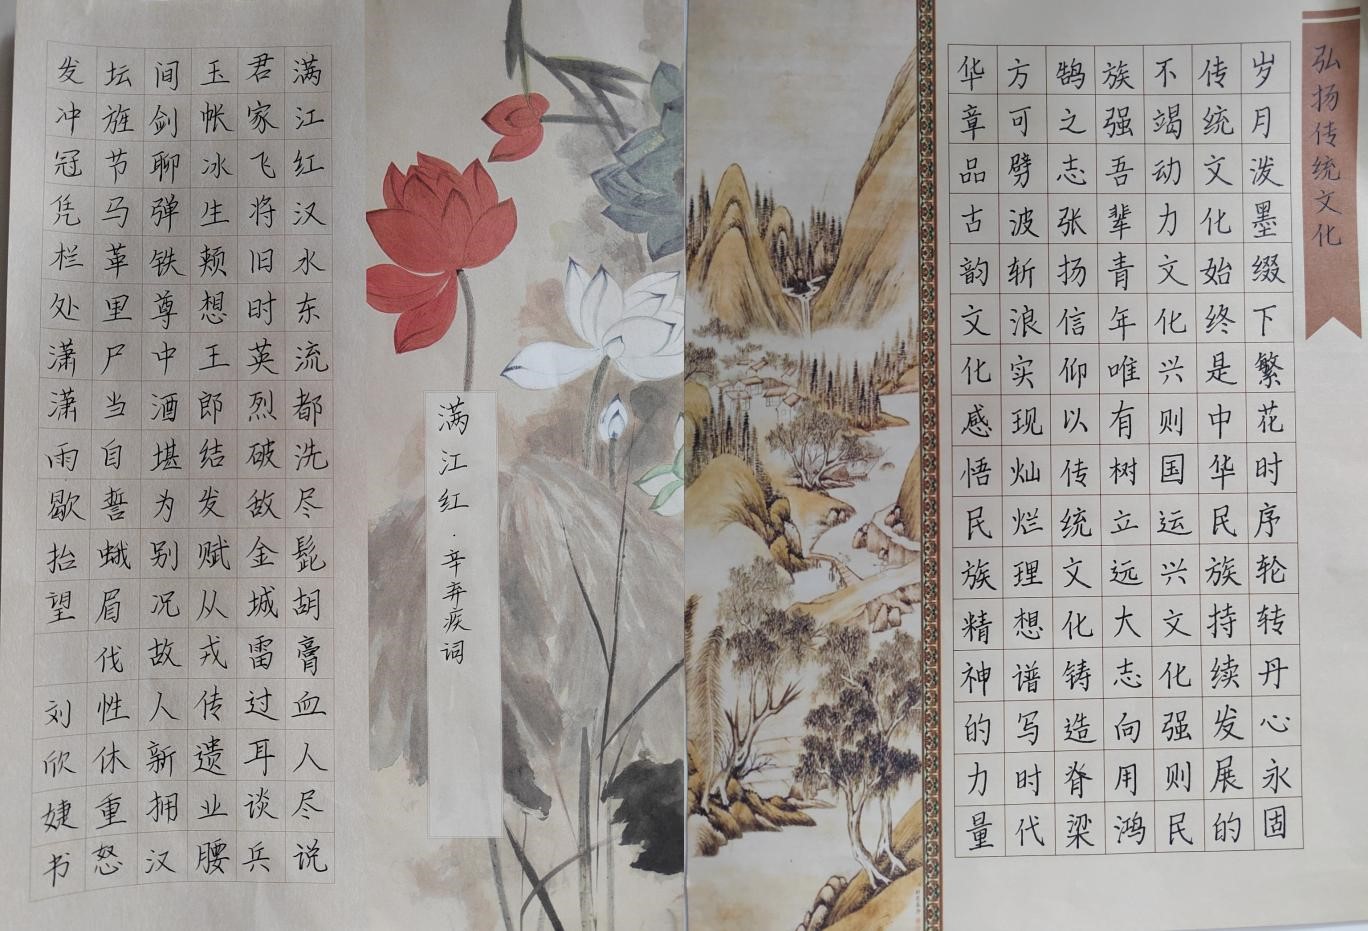 弘扬传统文化
岁月泼墨缀下繁花时序轮转丹心永固
传统文化始终是中华民族持续发展的
不竭动力文化兴则国运兴文化强则民
族强吾辈青年唯有树立远大志向用鸿
鹄之志张扬信仰以传统文化铸造脊梁
方可劈波斩浪实现灿烂理想谱写时代
华章品古韵文化感悟民族精神的力量
满江红·辛弃疾词
满江红汉水东流都洗尽髭胡膏血人尽说
君家飞将旧时英烈破敌金城雷过耳谈兵
玉帐冰生颊想王郎结发赋从戎传遗业腰
间剑聊弹铁尊中酒堪为别况故人新拥汉
坛旌节马革里尸当自誓蛾眉伐性休重怒
发冲冠凭栏处潇潇雨歇抬望 刘欣婕书